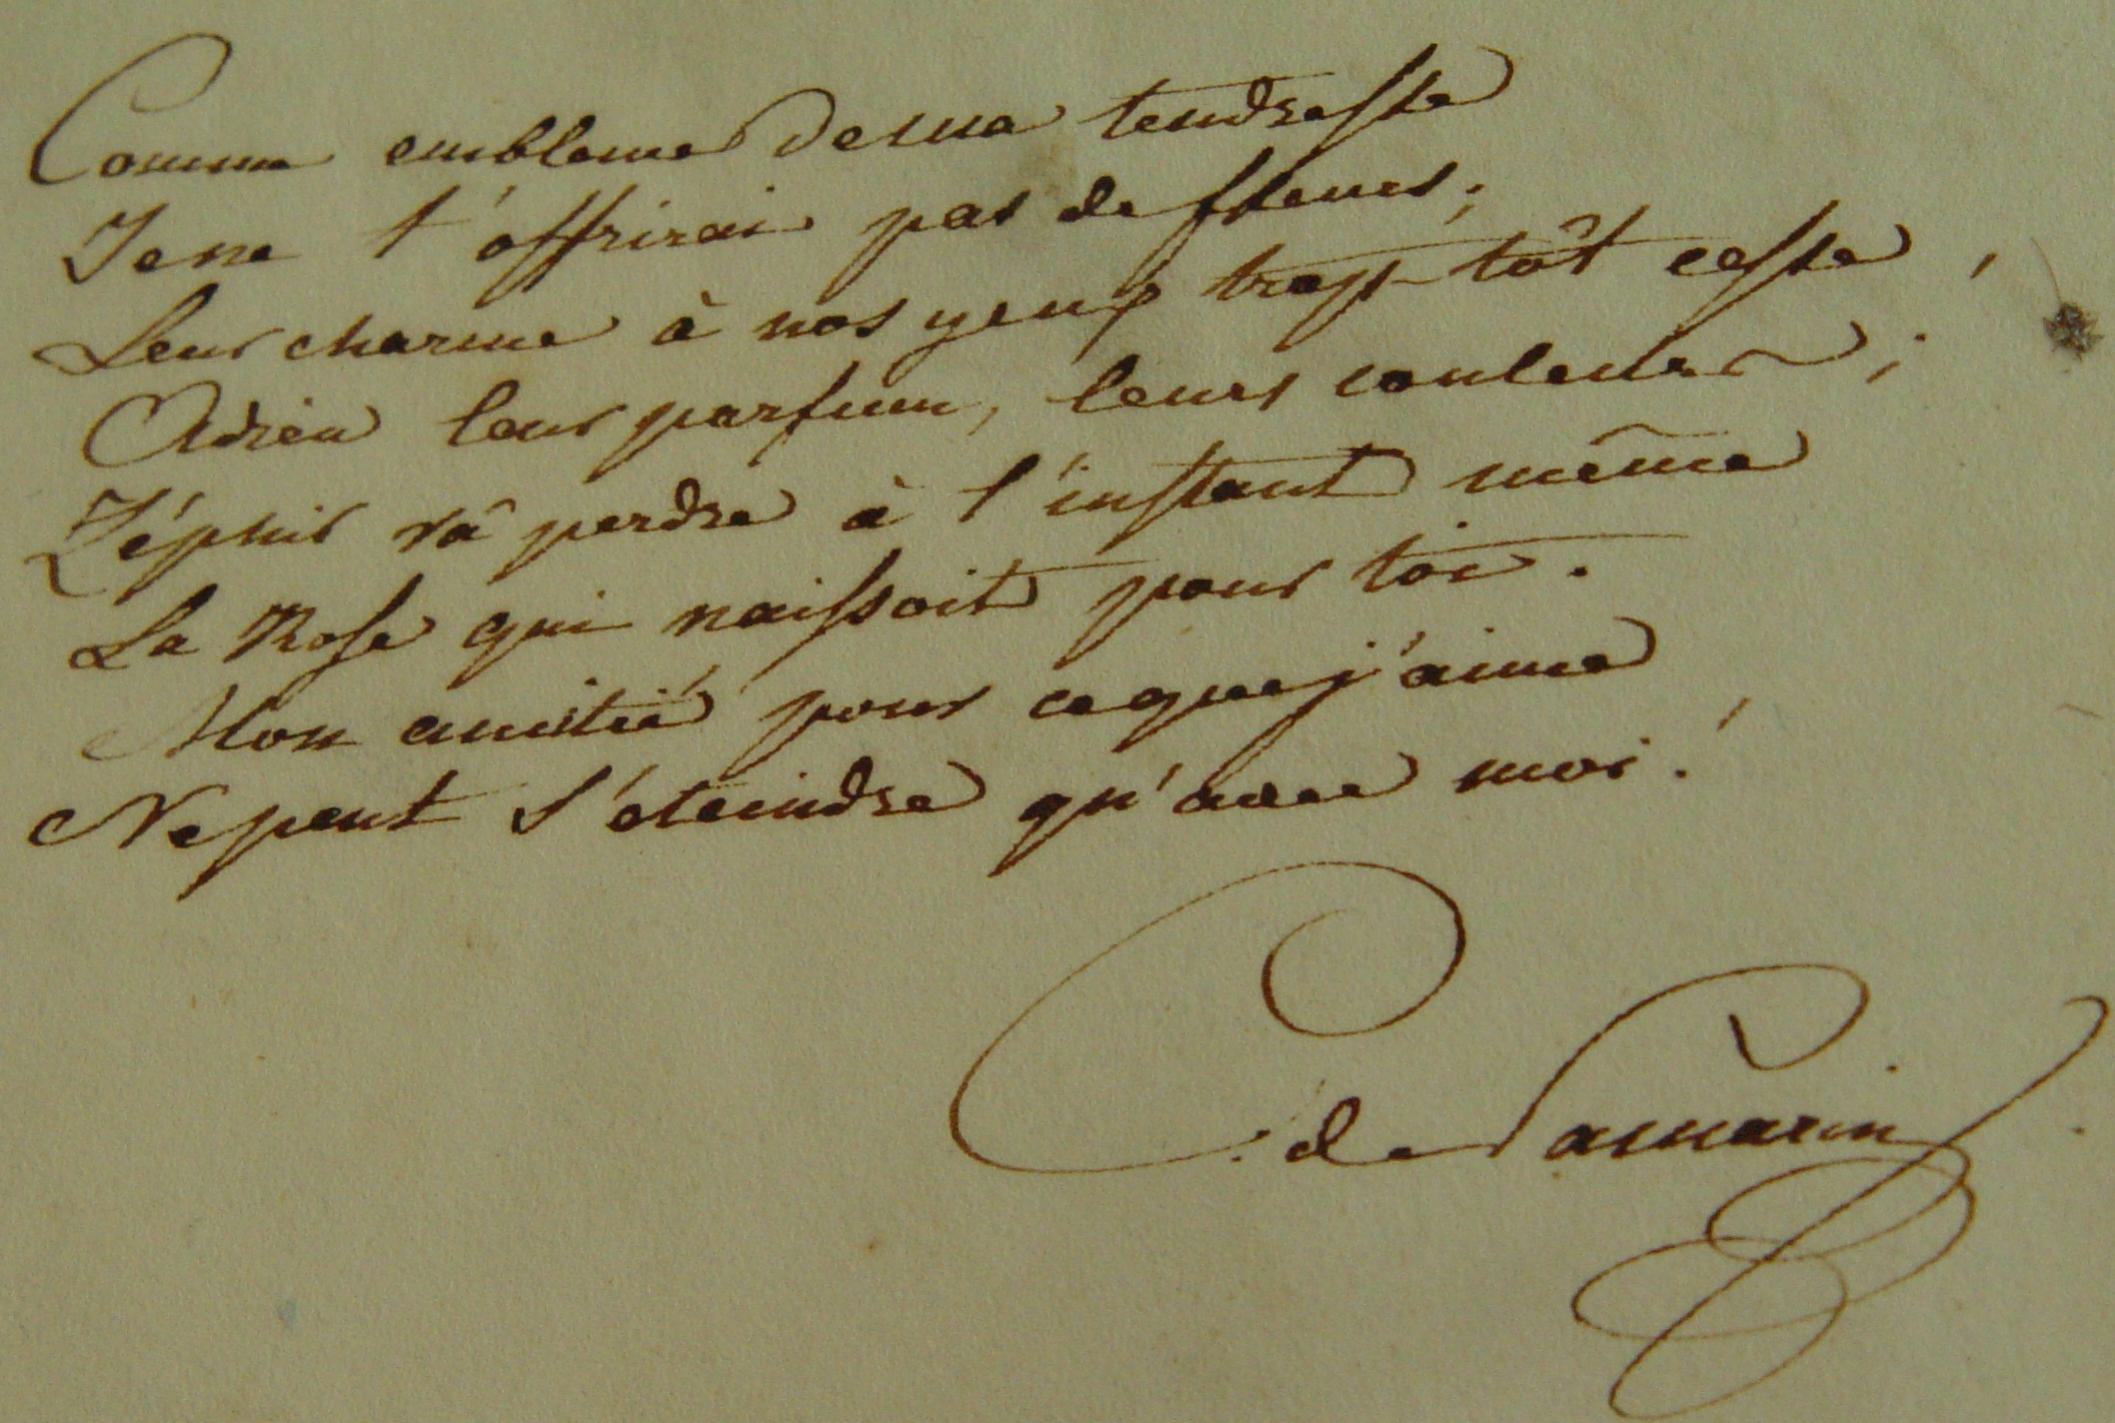 Comme embleme de ma tendresse
Je ne t'offrirai pas de fleurs;
Leur charme à nos yeux trop tôt cesse,
Adieu leur parfum, leurs couleurs;
Zéphir vâ perdre à l'instant même
La Rose qui naissoit pour toi.
Mon amitié pour ce que j'aime
Ne peut s'éteindre qu'avec moi!
C. de Samarin